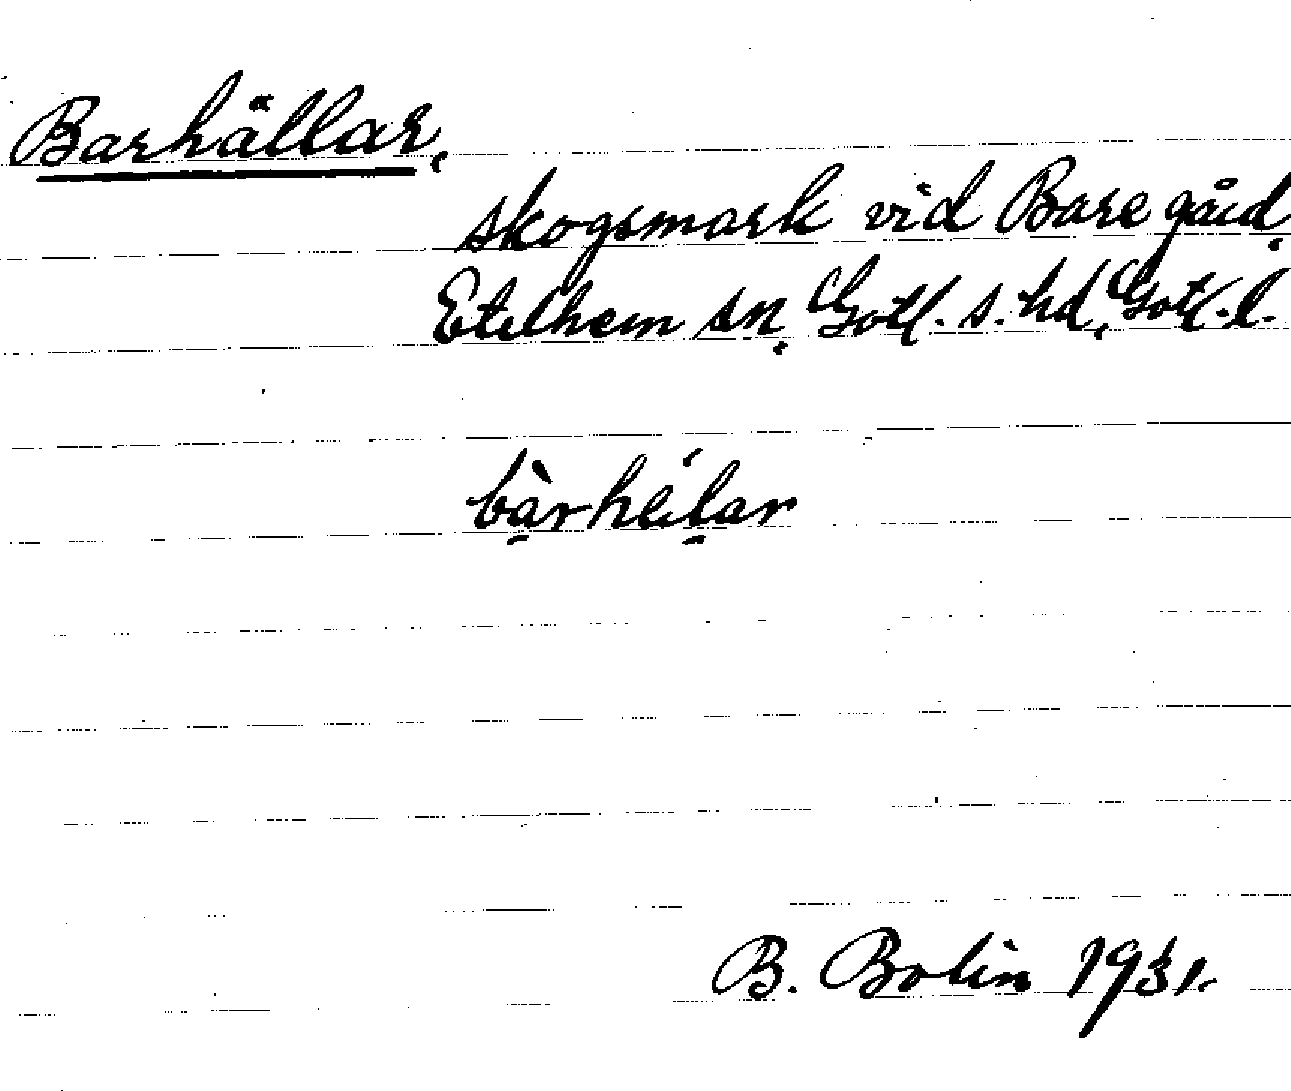 Barhällar,
skogsmark vid Bare gård,
Etelhem sn, Gotl. s. hd, Gotl. l.
bàrhélar
B. Bolin 1931.